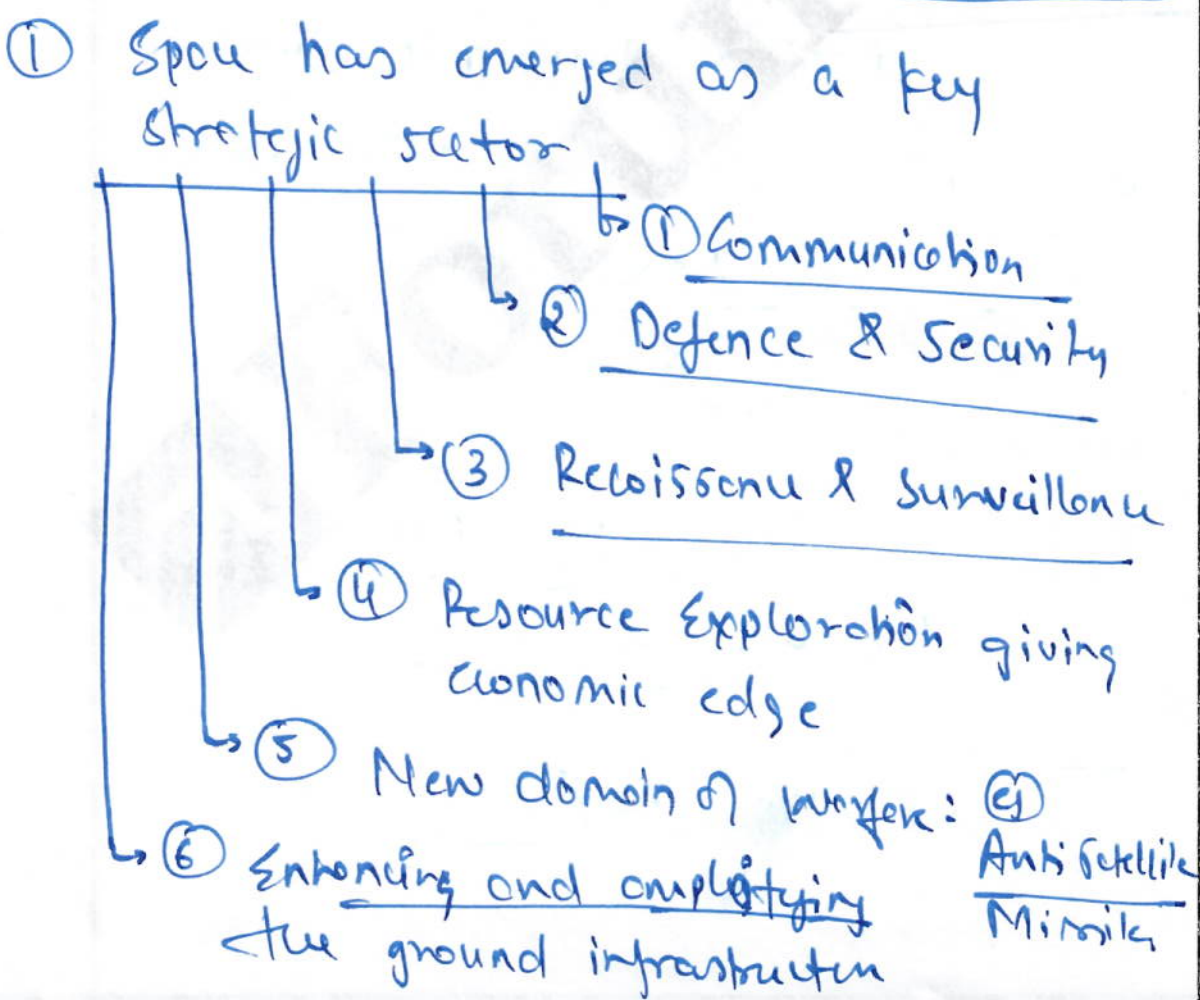 ① Space has emerged as a key
strategic sector
① Communication
② Defence & Security
③ Recoissance & Surveillance
④ Resource Exploration giving
economic edge
⑤ New domain of warfare: eg
Anti Satellite
Missiles
⑥ Enhancing and amplifying
the ground infrastructure